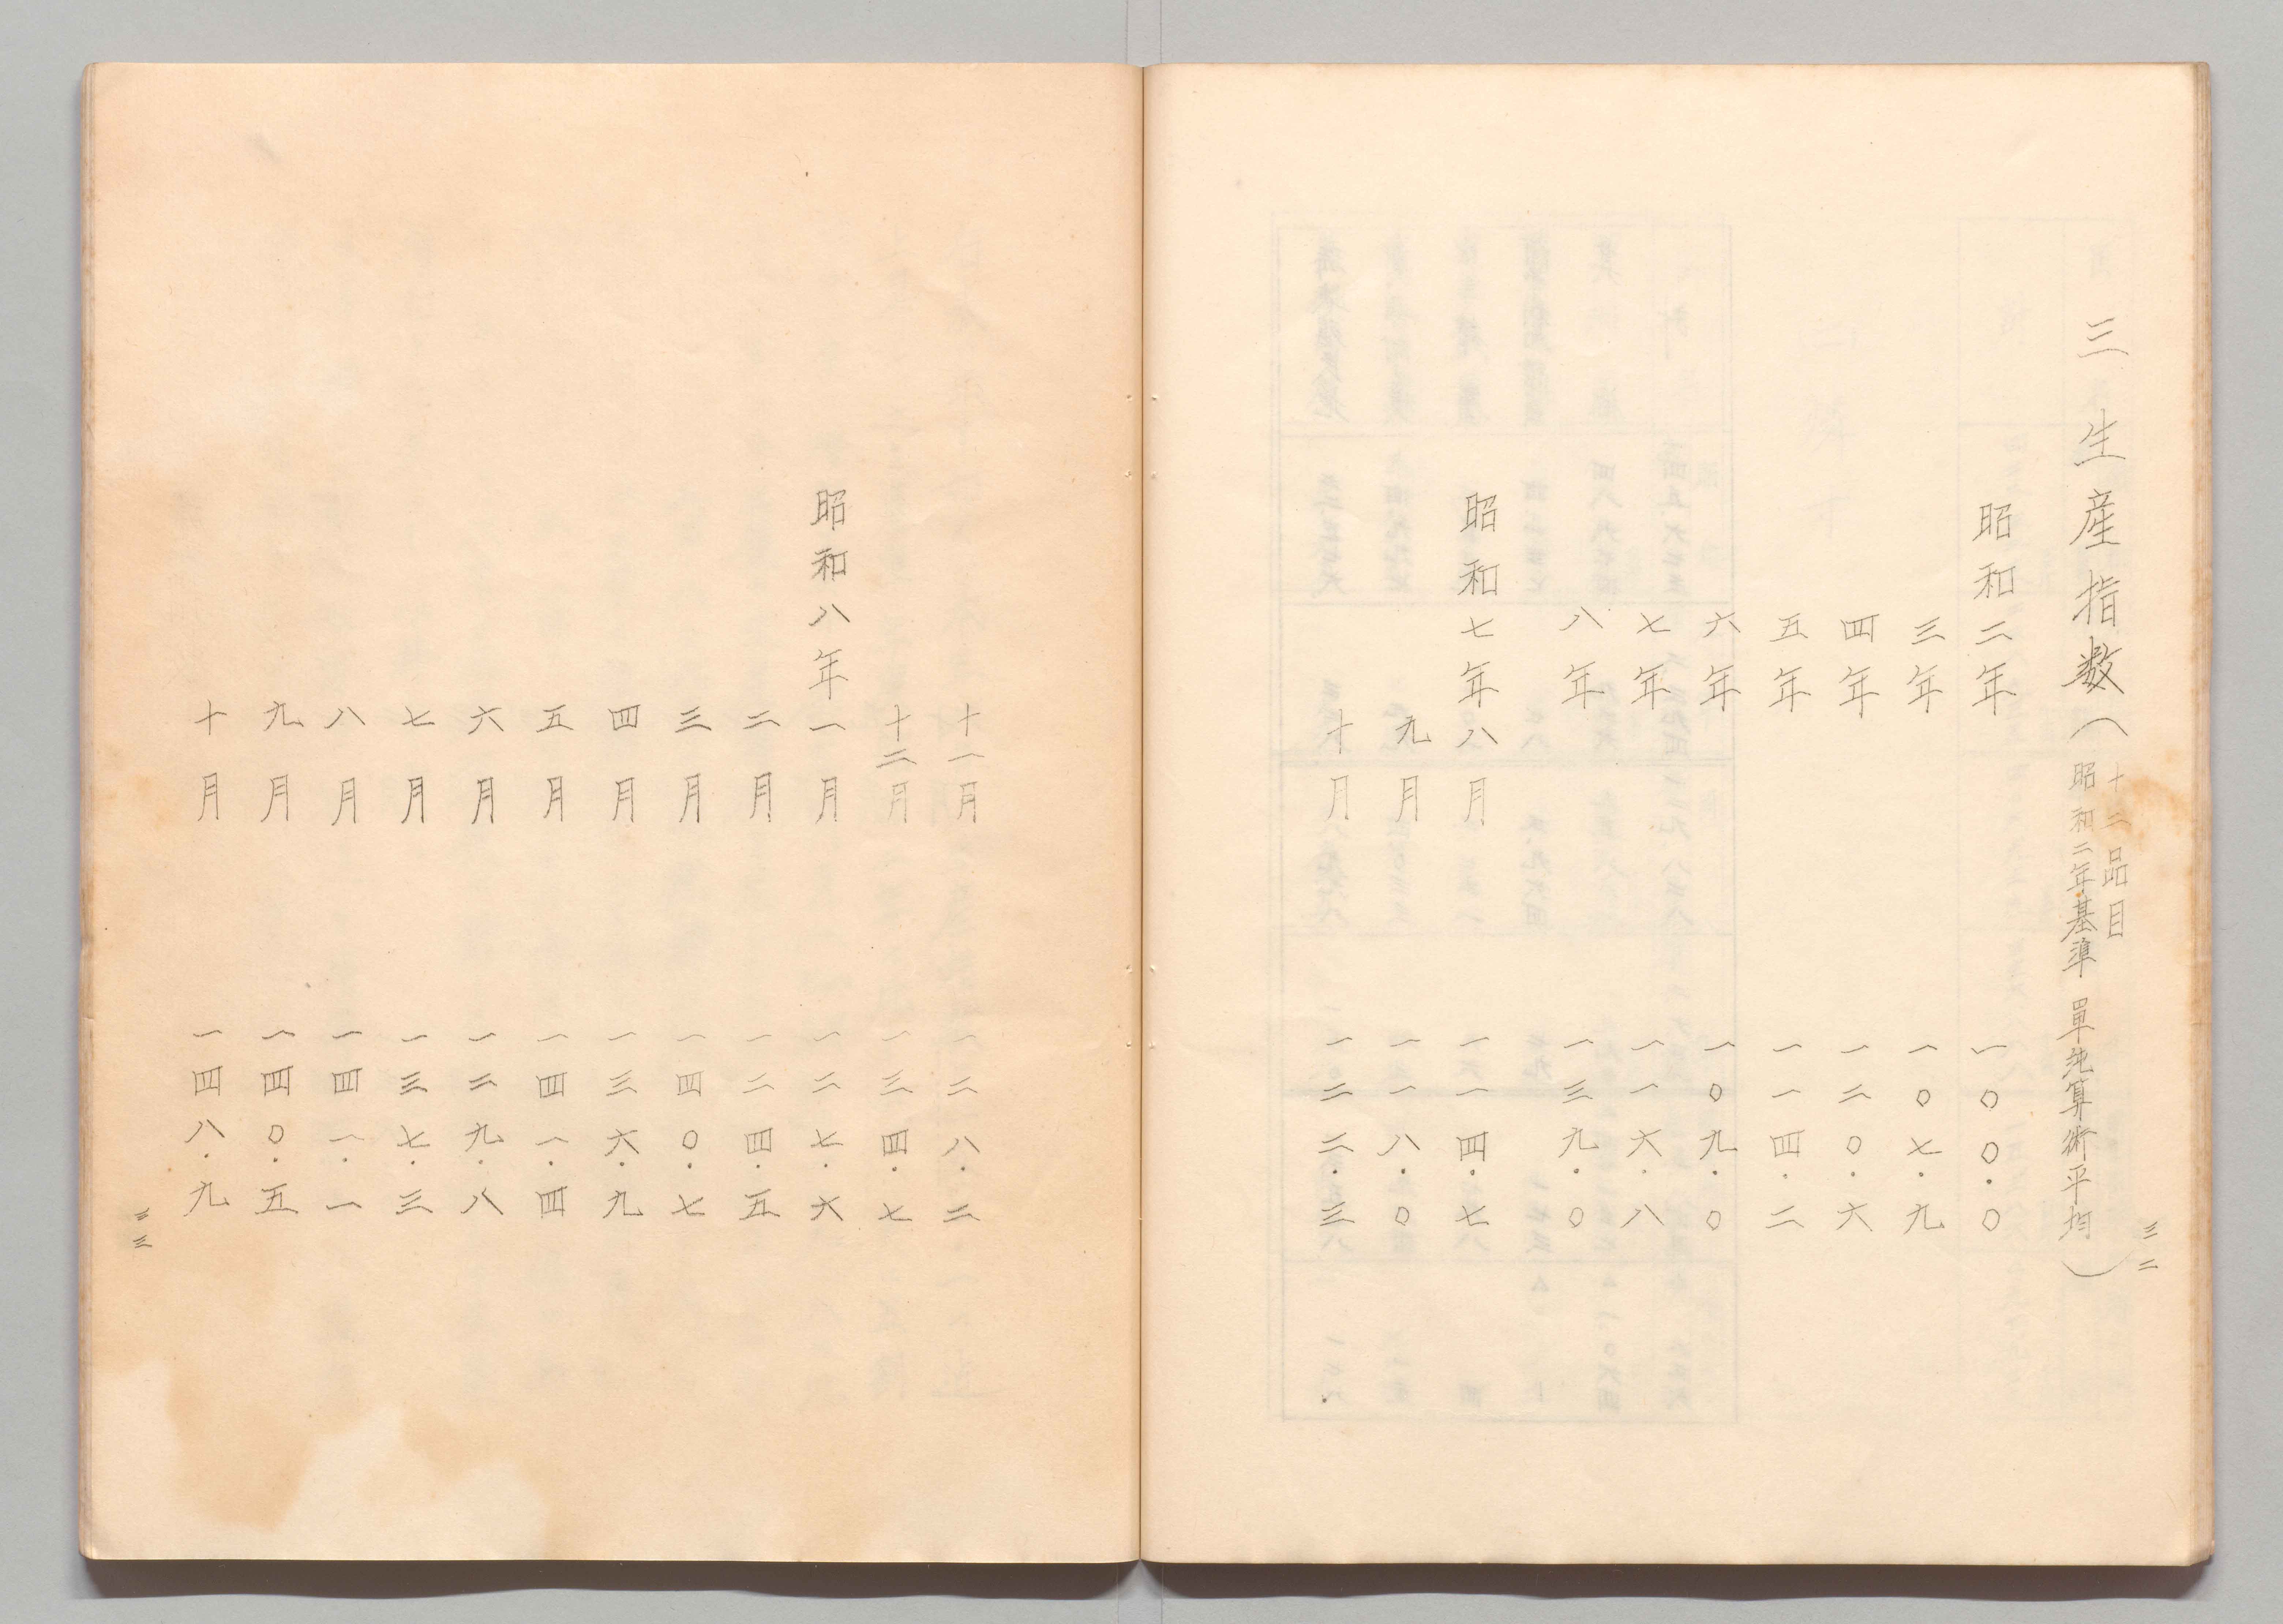 三 生産指数(十二品目
昭和二年基準 單純算術平均)
昭和二年 一〇〇.〇
三年 一〇七.九
四年 一二〇.六
五年 一一四.二
六年 一〇九.〇
七年 一一六.八
八年 一三九.〇
昭和七年八月 一一四.七
九月 一一八.〇
十月 一二二.三
三二
十一月 一二八.二
十二月 一三四.七
昭和八年一月 一二七.六
二月 一二四.五
三月 一四〇.七
四月 一三六.九
五月 一四一.四
六月 一二九.八
七月 一三七.三
八月 一四一.一
九月 一四〇.五
十月 一四八.九
三三